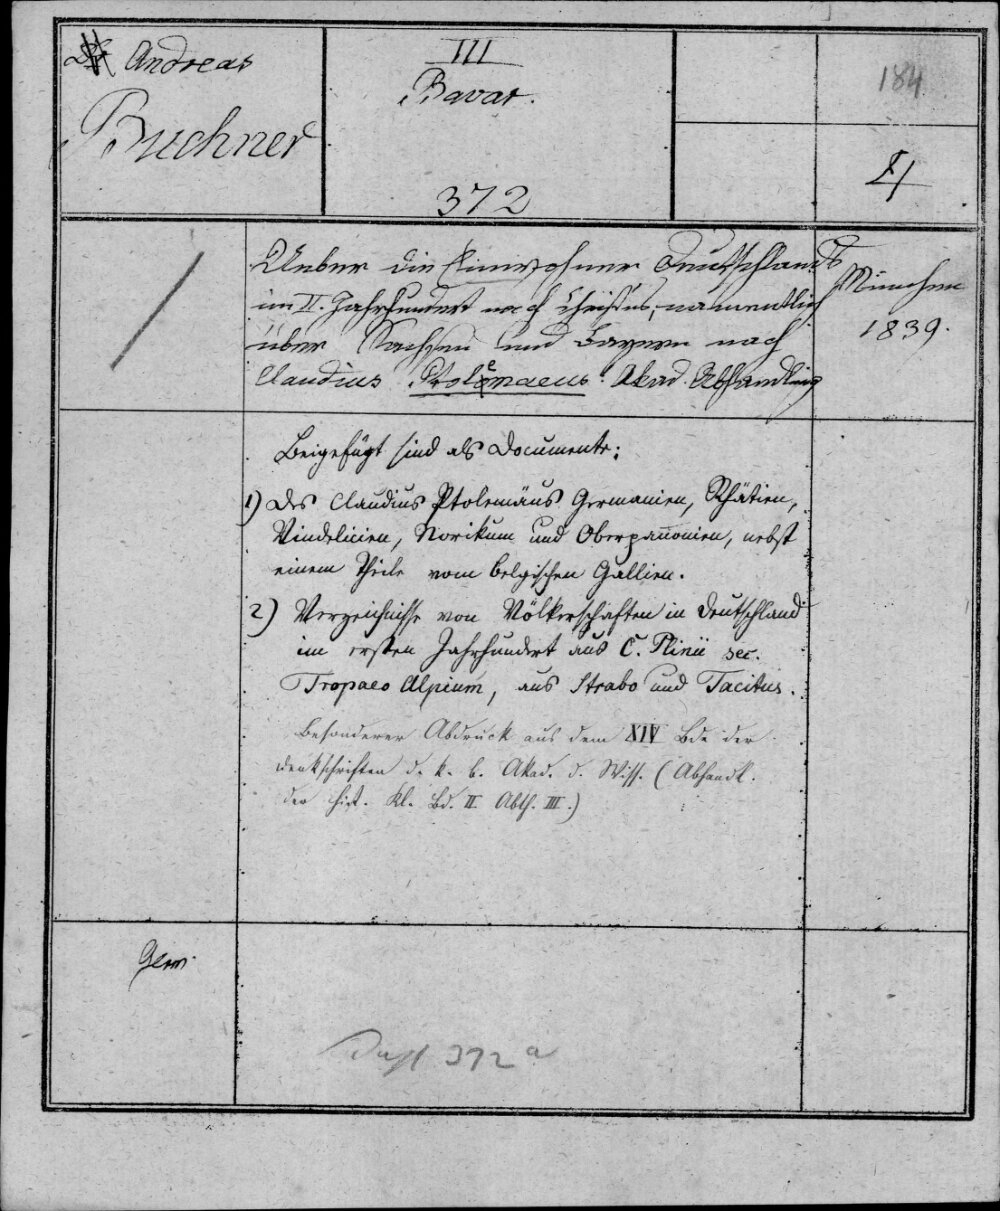 Andreas
Buchner
III
Bavar.
372
184
4
Ueber die Einwohner Deutschlands
im II. Jahrhundert nach Christus, namentlich
über Sachsen und Bayern nach
Claudius Ptolemaeus. Akad. Abhandlung
München
1839.
Beigefügt sind als Documente:
1) Des Claudius Ptolemäus Germanien, Rhätien,
Vindelicien, Norikum und Oberpan̄onien, nebst
einem Theile vom belgischen Gallien.
2) Verzeichnisse von Völkerschaften in Deutschland
im ersten Jahrhundert aus C. Plinii sec.
Tropaeo Alpium, aus Strabo und Tacitus.
Besonderer Abdruck aus dem XIV Bde der
Denkschriften d. k. b. Akad. d. Wiss. (Abhandl.
der hist. Kl. Bd. II. Abth. III.)
Germ.
372 a